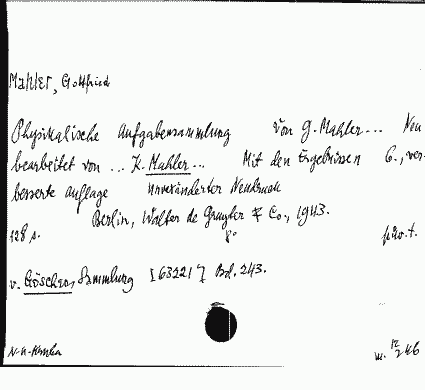 Mahler, Gottfried
Physikalische Aufgabensammlung von G. Mahler... Neu
bearbeitet von ... K. Mahler... Mit den Ergebnissen 6., ver-
besserte Auflage Unveränderter Neudruck
Berlin, Walter de Gruyter & Co., 1943.
128 s. 8°
v. Göschen, Sammlung [63221] Bd. 243.